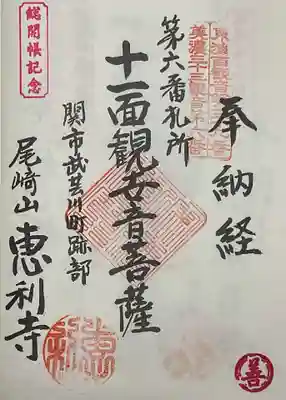 奉納経
第六番札所
十一面観世音菩薩
関市武芸川町跡部
尾崎山 恵利寺
総開帳記念
善